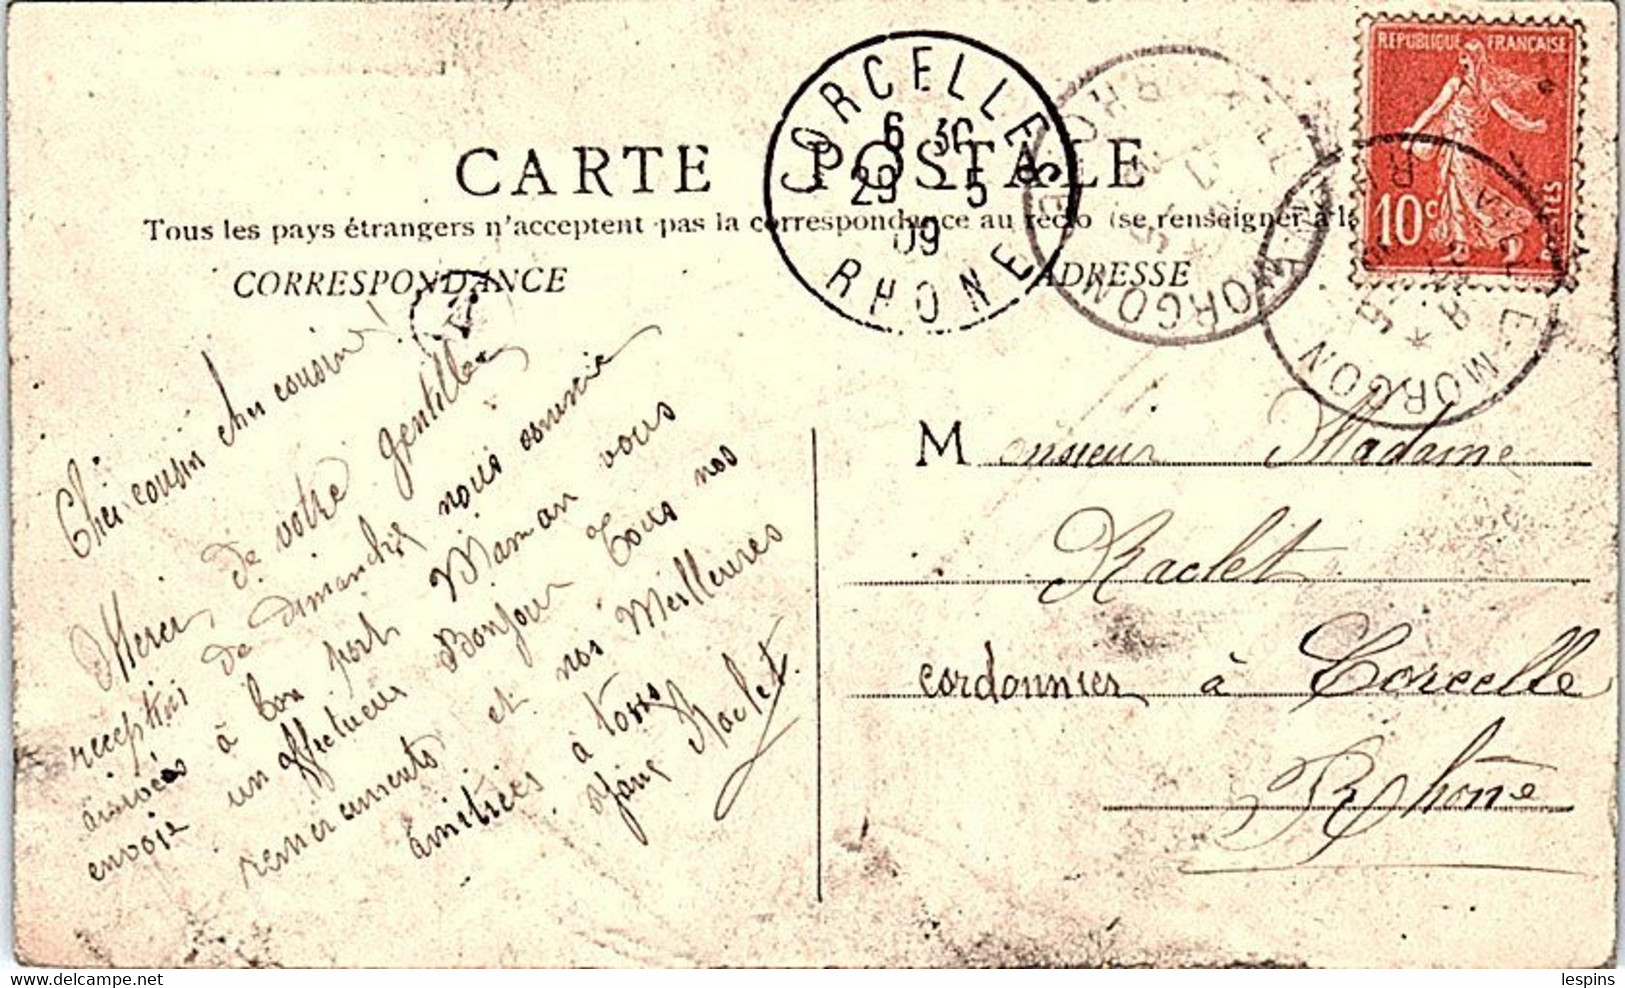 REPUBLIQUE FRANÇAISE
10 c
POSTES
CORCELLES
6 30
29 5
09
RHONE
VILLIE-MORGON
RHONE
VILLIE-MORGON
CARTE POSTALE
Tous les pays étrangers n'acceptent pas la correspondance au recto (se renseigner à la
CORRESPONDANCE
ADRESSE
Cher cousin cher cousine!
Merci, de votre gentille
reception de dimanche nous
arrivées à bon port Maman vous
envoie un affectueux Bonjour Tous nos
remerciements et nos Meilleures
amitiées à tous
Raclet.
Monsieur Madame
Raclet
cordonnier à Corcelle
Rhône
delcampe.net
lespins